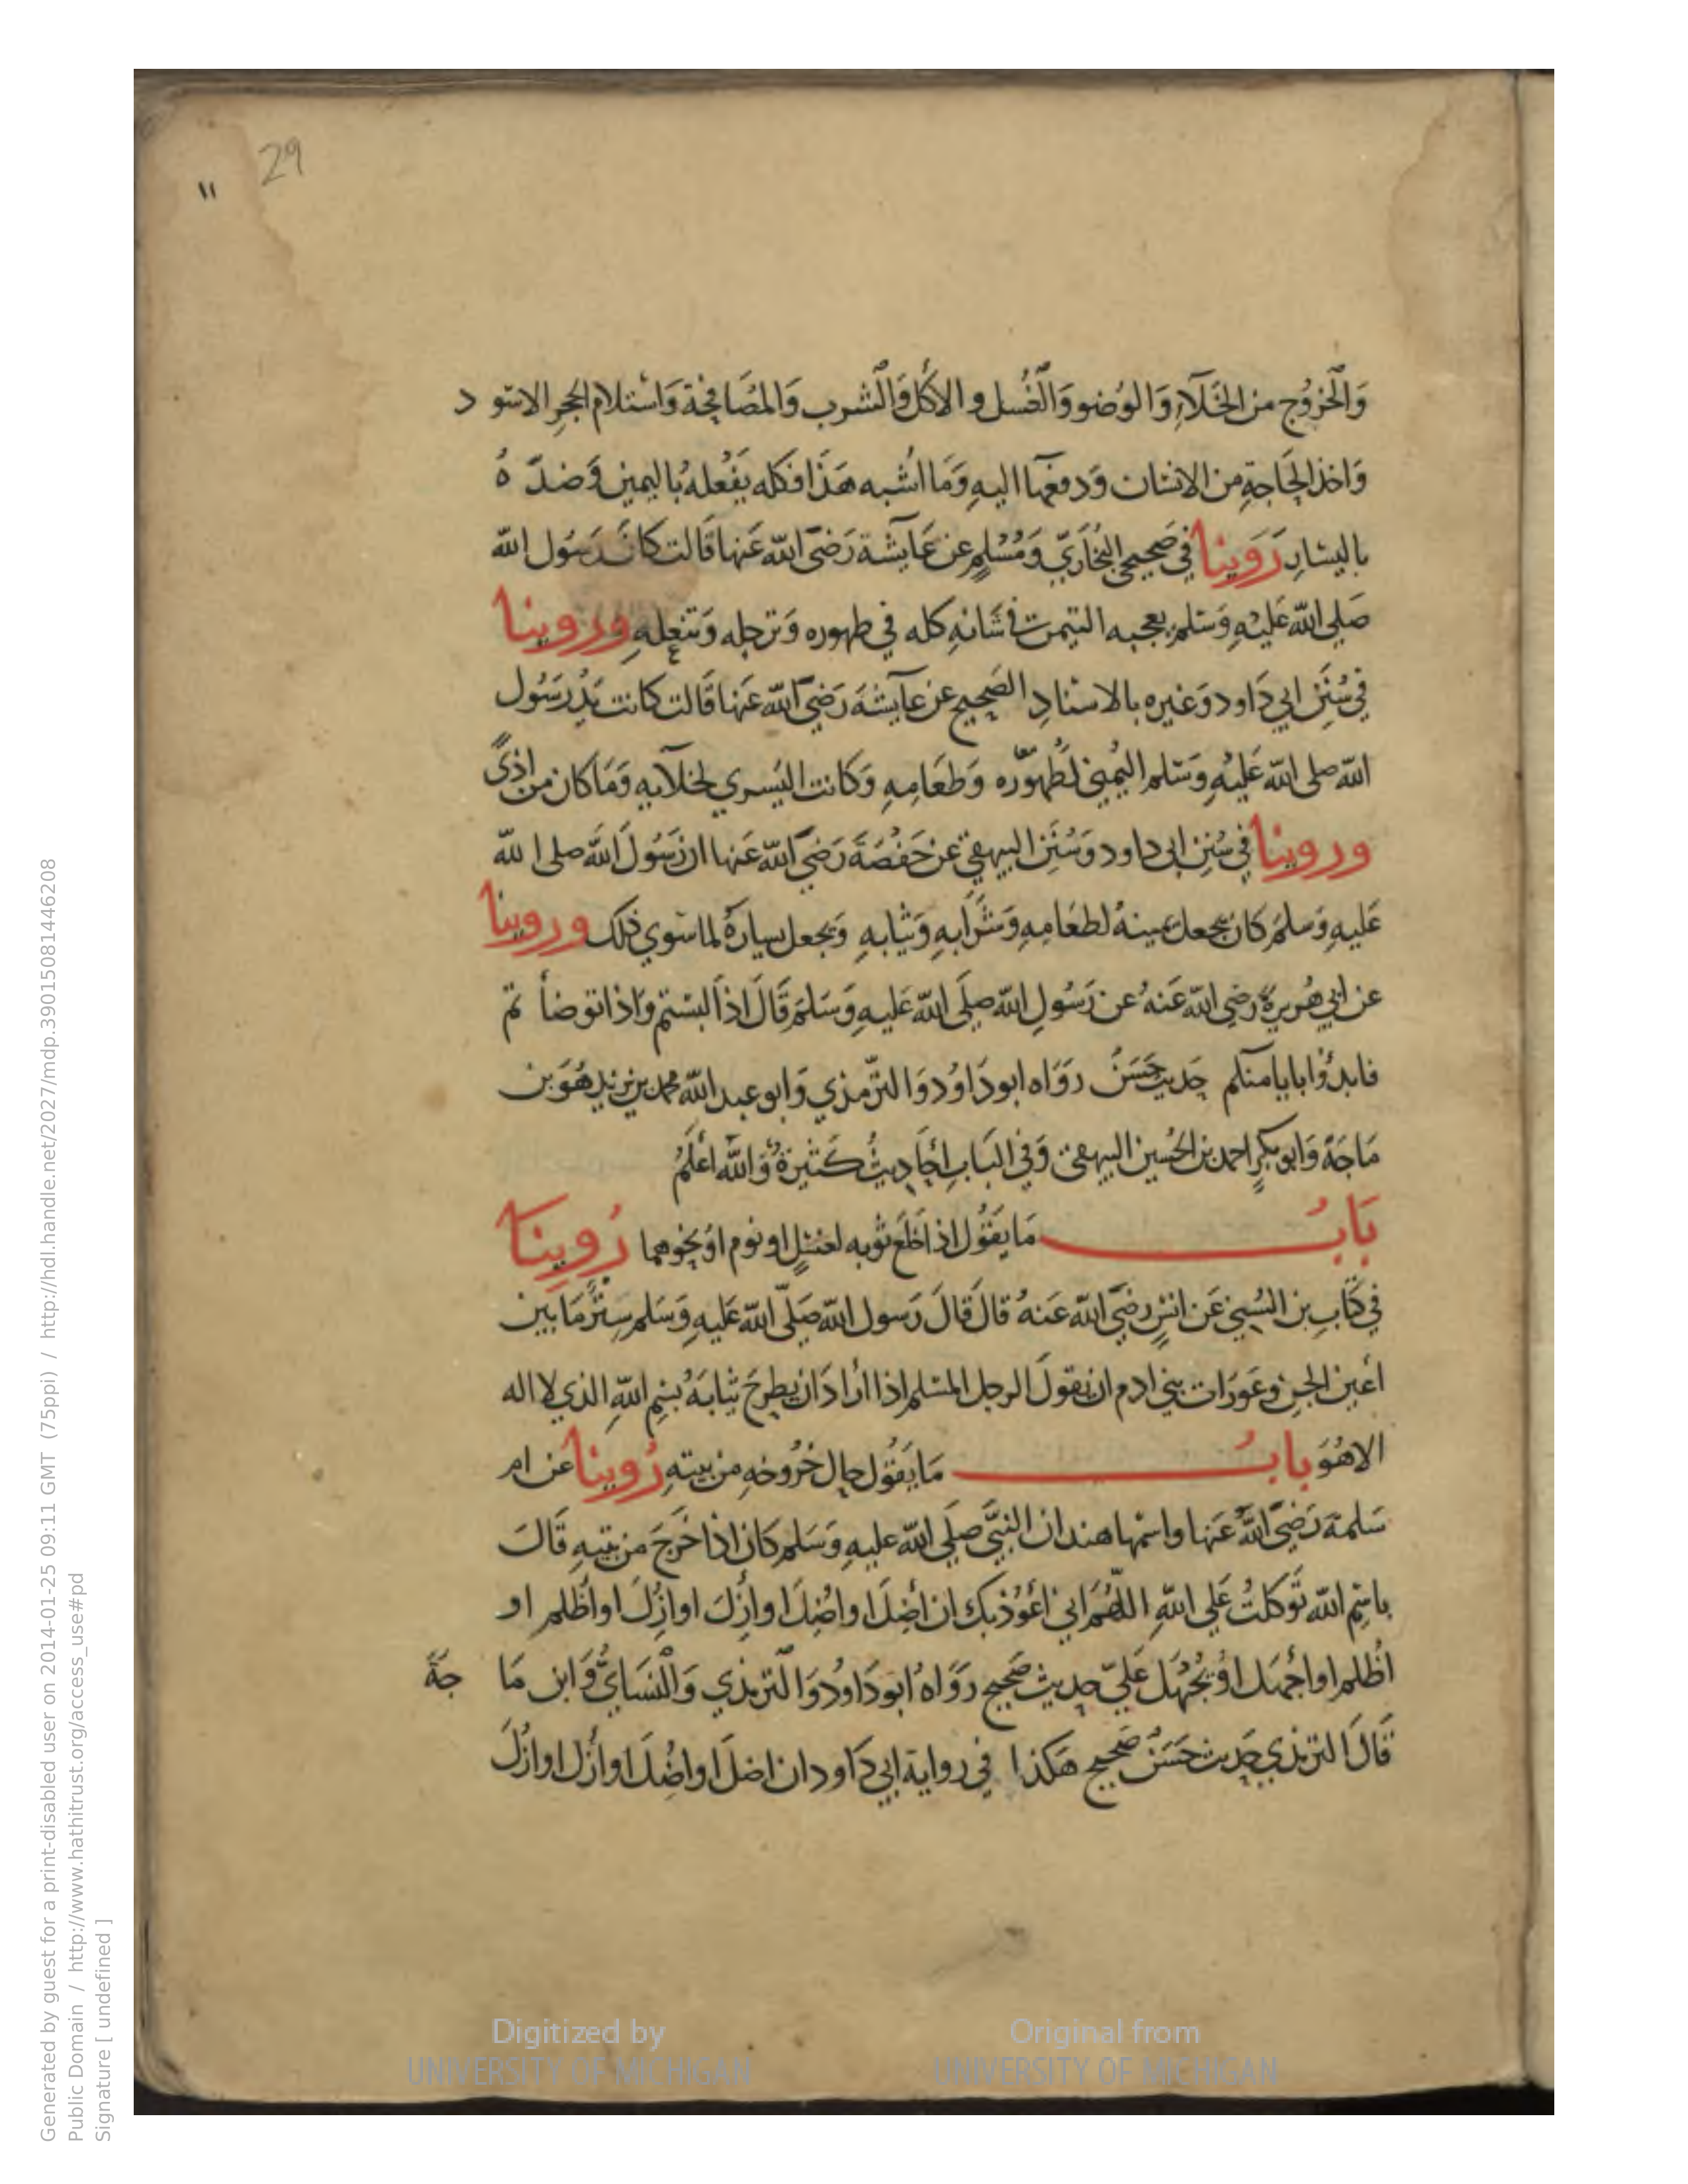 29
١١
وَالْخرُوُج من الخَلَآءِ وَالوُضو وَالْغُسل و الأكْل وَالْشرب وَالمُصَافحَة وَاسْتلام الحجرِ الاسو د
وَاخذ الحَاجةِ من الانسان وَدفعهَا اليهِ وَمَا اشُبه هَذَا فكله يَفْعلهُ بُاليمين وَضدَّ هُ
باليسَارِ رَوَينا في صَحيحي البُخَاريّ وَمُسْلمٍ عن عَايشة رَضيَ الله عَنها قَالت كانَ رَسُول الله
صَلى الله عَليْهِ وَسَلم يعجبه التيمن في شَانهِ كله في طهوره وَترجله وَتنعلهِ وروينا
في سُنَنِ ابي دَاود وَغيره بالاسنادِ الصَحيح عن عآيشَةَ رَضيَ الله عَنها قَالت كانت يَدُ رَسُول
الله صلى الله عَليْهِ وَسَلم اليُمنيٰ لطُهوره وَطعَامِهِ وَكانت اليُسري لخلآيهِ وَمَا كان من اذيً
وروينا في سُنن ابى داود وَسُنَن البيهقي عن حَفْصَةَ رَضيَ الله عَنها ان رَسُول الله صلى ا لله
عَليهِ وَسَلمَ كان يجعل يمينهُ لطعَامِهِ وَشَرابهِ وَثيابهِ وَيجعل يسارهُ لما سَوي ذلك وروينا
عن ابي هُريرةَ رضي الله عَنهُ عن رَسُولِ الله صلَى الله عَليهِ وَسَلمَ قَالَ اذا لبَستم وَاذا توضأ تم
فابدؤا بايامنكم حَديث حَسَنٌ روَاه ابو دَاوُد وَالترّمذي وَابو عبد الله محمد بن يزيد هُوَ بن
مَاجَةَ وَابو بكرٍ احمد بن الحُسين البيهقى وَفي البَابِ احَاديثُ كَثيرَةُ وَالله اعْلَمُ
بَابُ مَا يَقوُل اذا خَلَعَ ثوبه لغسْلٍ او نوم اوُ نحوهما رُوينَا
في كَتَابِ بن السُني عَن انسٍ رضيَ الله عَنهُ قالَ قَالَ رَسول الله صَلّى الله عَليهِ وَسَلم سِتْرُ مَا بين
أعين الجن وعَورَات بني ادم ان يَقولَ الرجل المسْلم اذا ارَادَ ان يطرحَ ثيابَهُ بْسِمِ الله الذي لا اله
الا هُوَ بابُ مَا يَقوُل حال خُرُوجهِ من بيتهِ رُوينا عن ام
سَلمة رَضيَ الله عَنها واسْمها هند ان النبيَّ صلى الله عليهِ وَسَلم كان اذا خَرَجَ من بَيتهِ قَالَ
باسْمِ الله تَوَكلتُ عَلي اللهِ اللهُمَ اني أعُوُذ بك ان أضِلَ او اضُلَ او أزِلَ او ازلَ او اظلم او
اظُلم او اجْهَل اوْ يُجْهَل عَليّ حديث صَحيح رَوَاهُ ابَو دَاودُ وَالْترمذي وَالْنسَايُّ وَابن مَا جَةَ
قَالَ الترمذي حَديث حَسَنٌ صَحيح هَكذا في رواية ابي دَاود ان اضلَ او اضُلَ او أزل او ازُلَ
Digitized by
UNIVERSITY OF MICHIGAN
Original from
UNIVERSITY OF MICHIGAN
Generated by guest for a print-disabled user on 2014-01-25 09:11 GMT (75ppi) / http://hdl.handle.net/2027/mdp.39015081446208
Public Domain / http://www.hathitrust.org/access_use#pd
Signature [ undefined ]